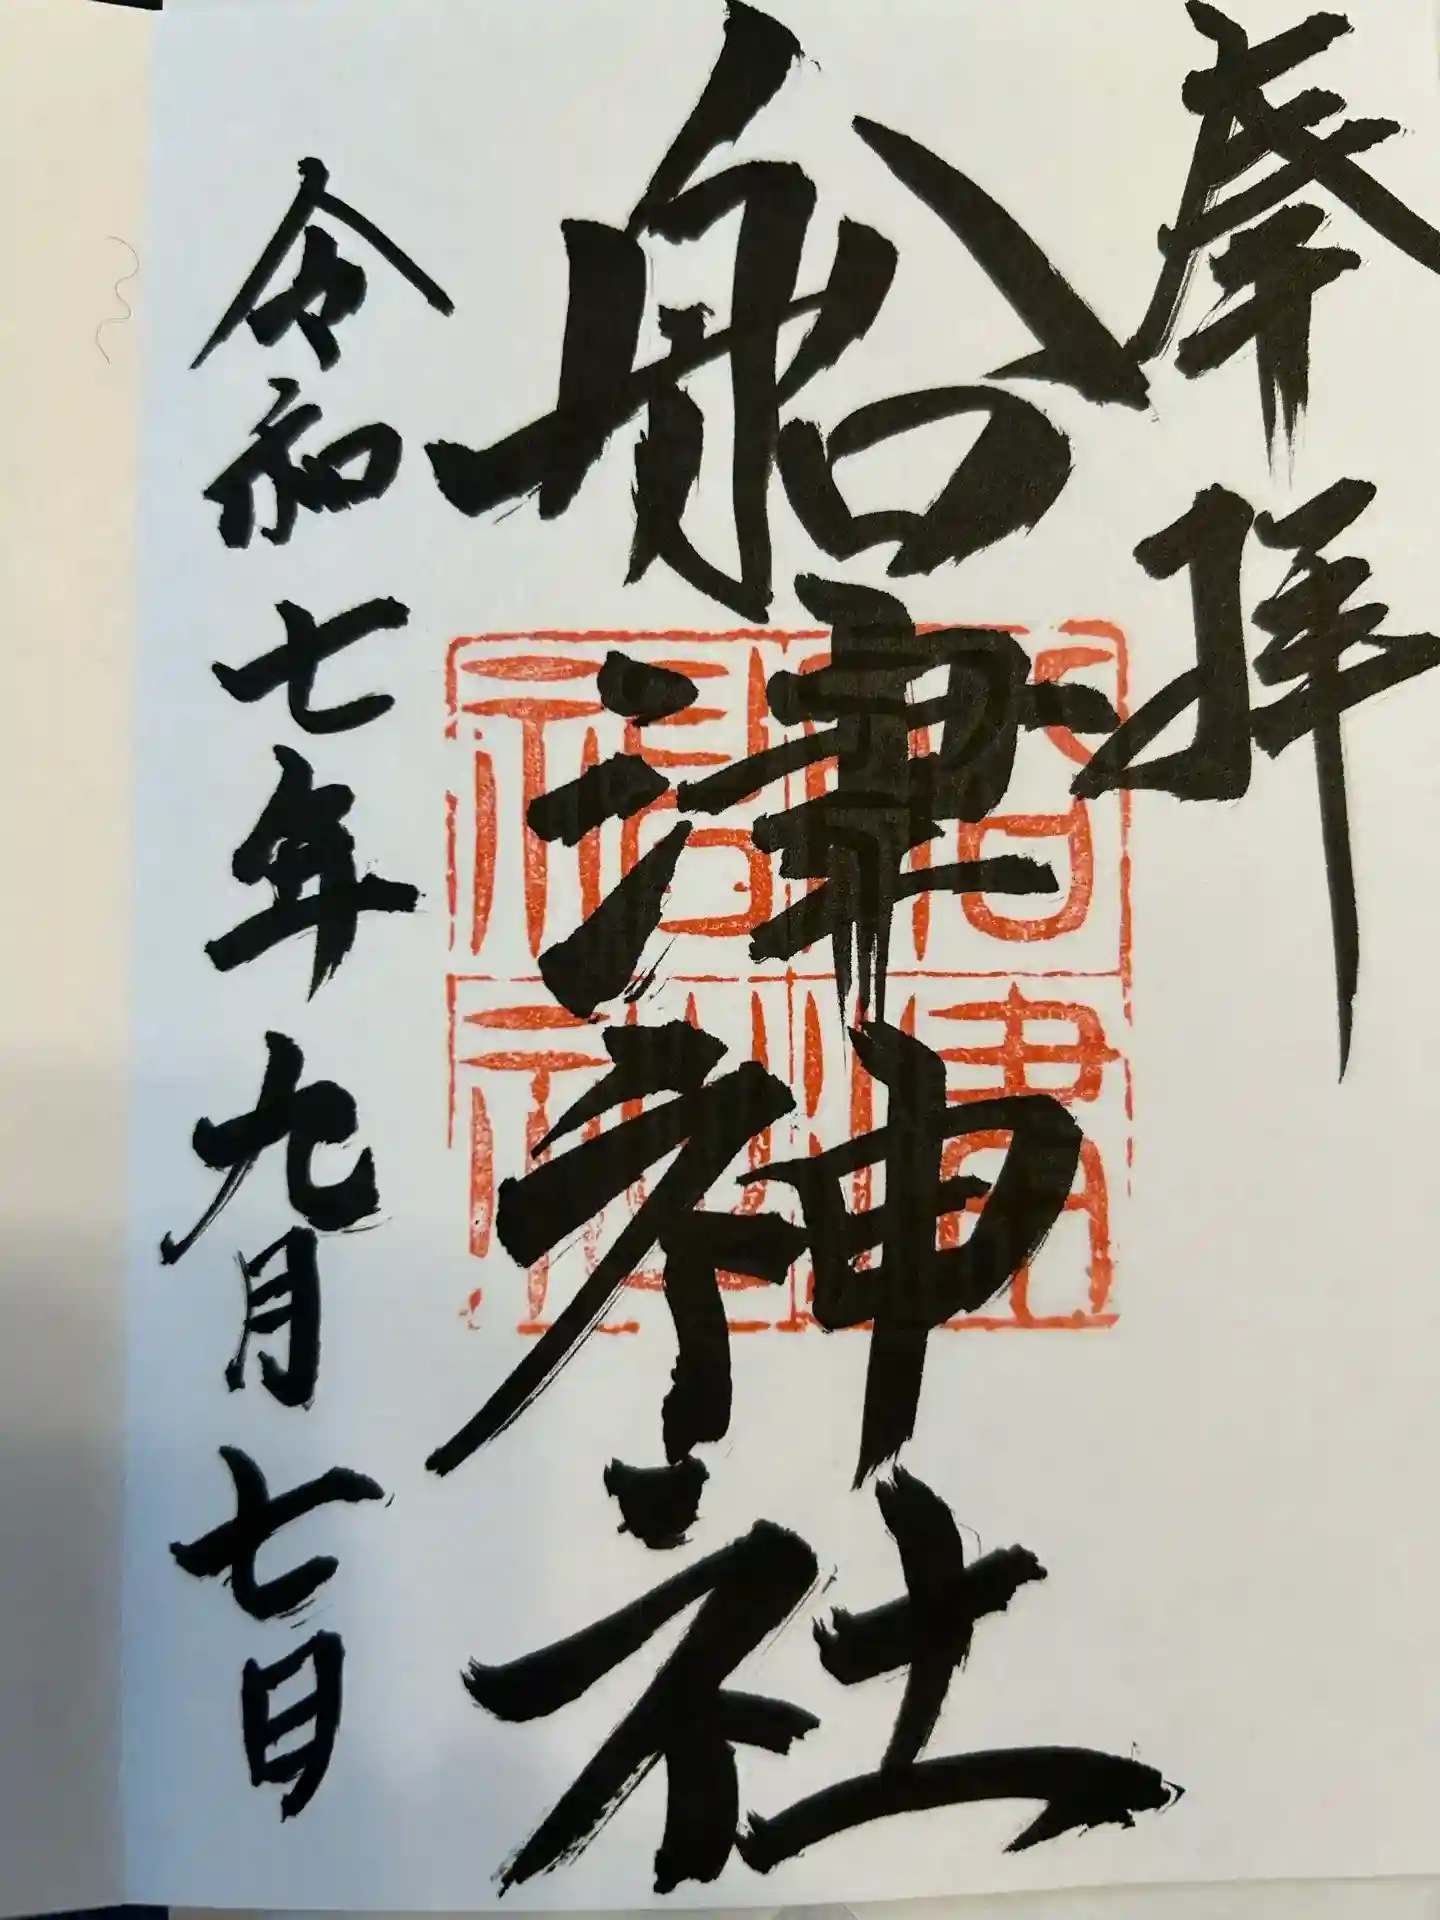 奉拝
船津神社
令和七年九月七日